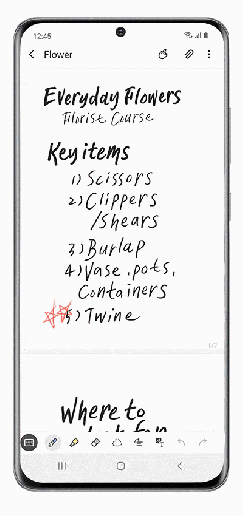 12:45
Flower
Everyday Flowers
Florist Course
Key items
1) Scissors
2) Clippers
/Shears
3) Burlap
4) Vase, pots,
Containers
5) Twine
1/7
Where to